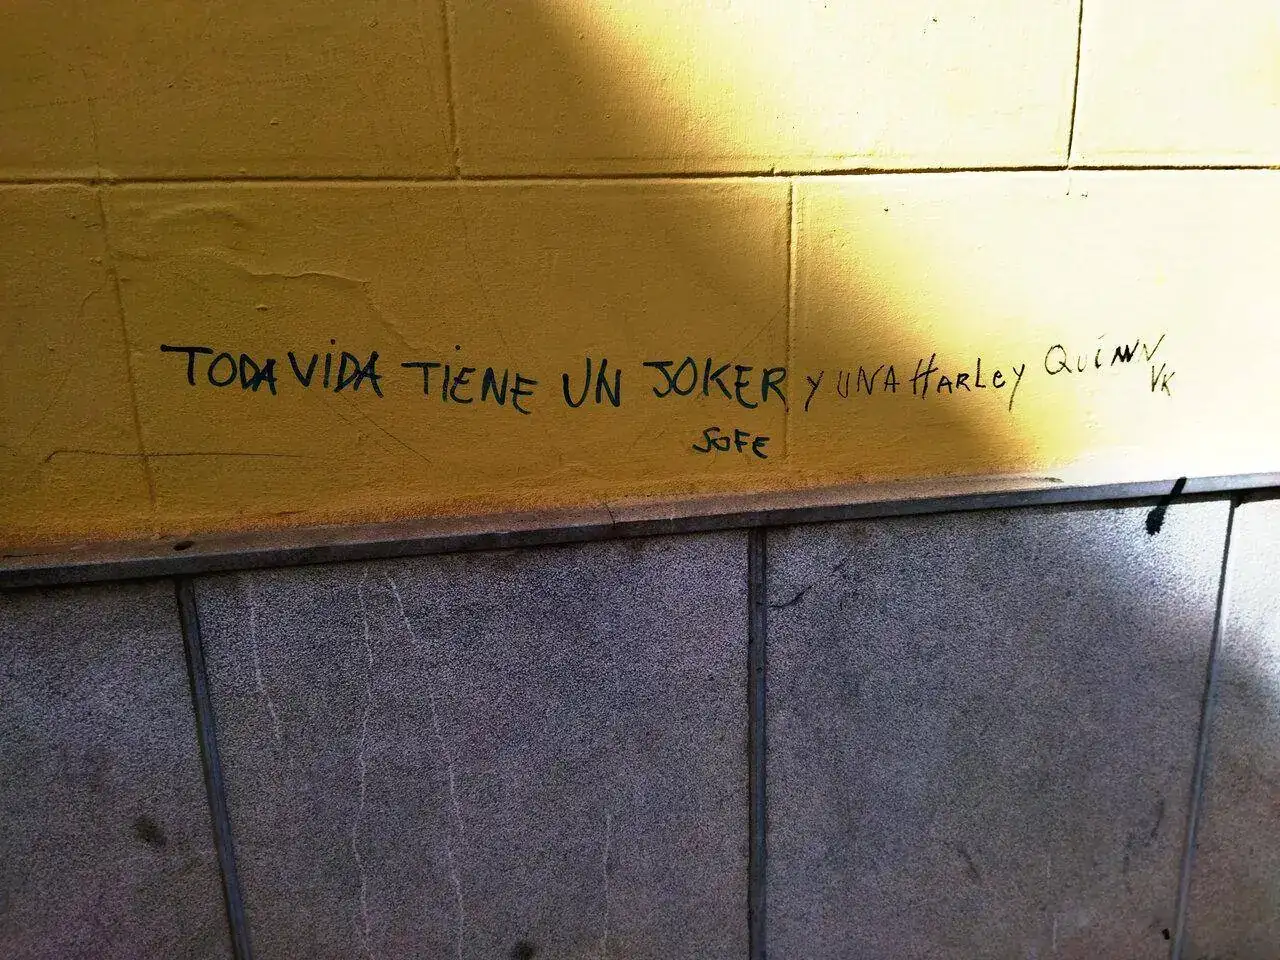 TODA VIDA TIENE UN JOKER Y UNA HARLEY QUINN
VK
SOFE